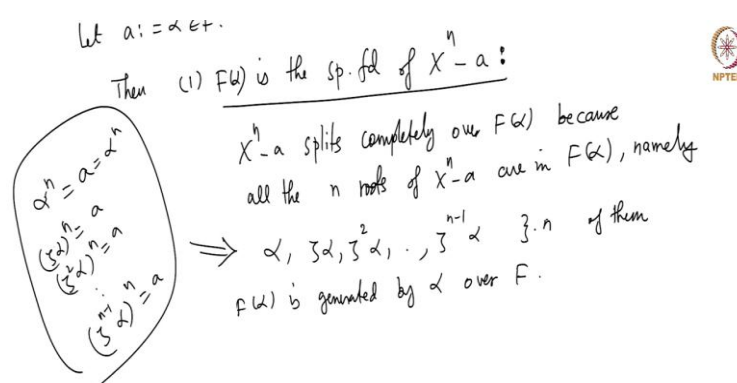 Let a := α ∈ F.
Then (1) F(α) is the sp. fd of Xⁿ - a :
Xⁿ - a splits completely over F(α) because
all the n roots of Xⁿ - a are in F(α), namely
⇒ α, ζα, ζ²α, . . , ζⁿ⁻¹α }. n of them
F(α) is generated by α over F.
αⁿ = a = αⁿ
(ζα)ⁿ = a
(ζ²α)ⁿ = a
⋮
(ζⁿ⁻¹α)ⁿ = a
NPTEL